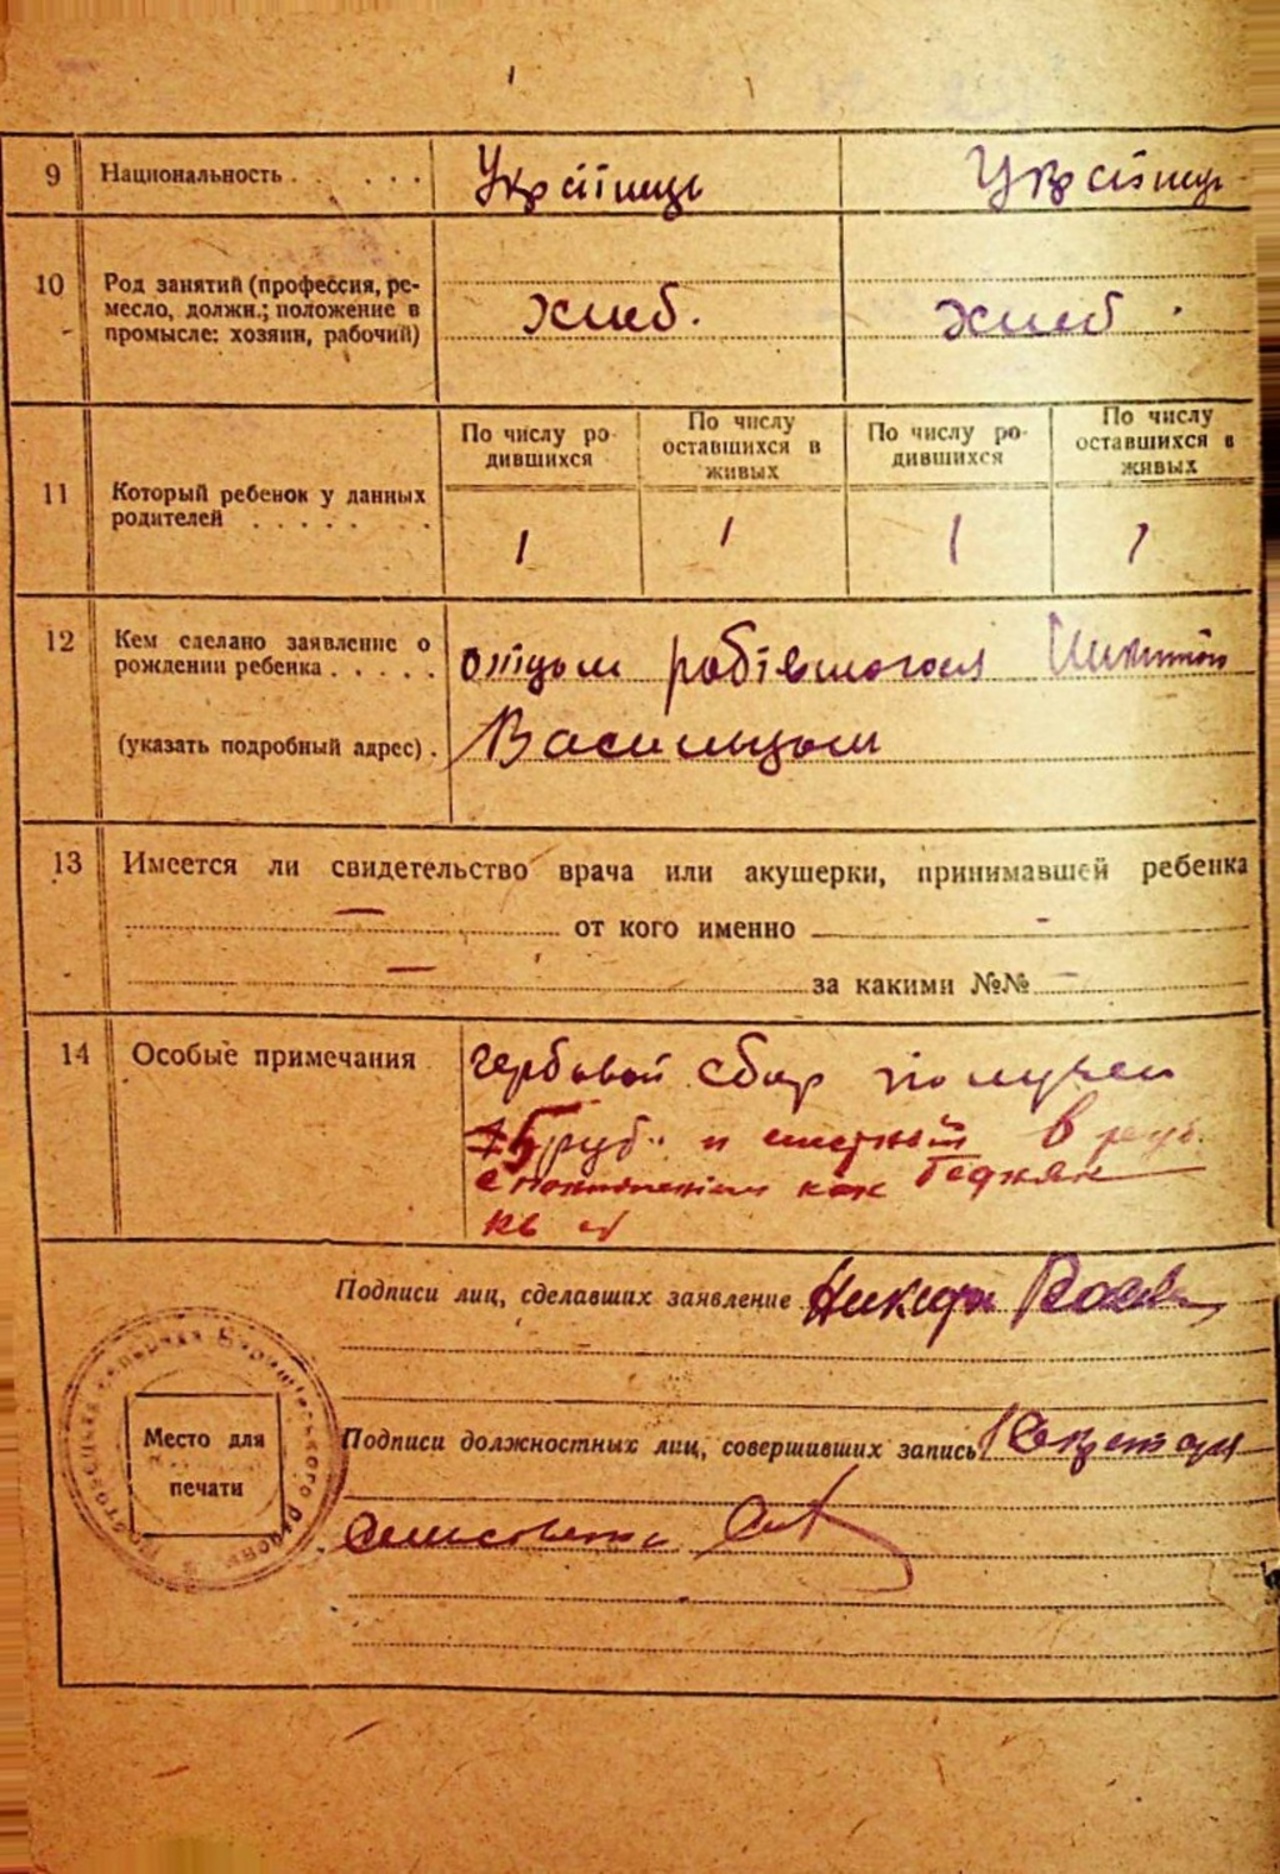 9 Национальность . . . . . Українець Українець
10 Род занятий (профессия, ре-
месло, должн.; положение в
промысле: хозяин, рабочий)
хлеб. хлеб.
По числу ро-
дившихся
По числу
оставшихся в
живых
По числу ро-
дившихся
По числу
оставшихся в
живых
11 Который ребенок у данных
родителей . . . . . .
1 1 1 1
12 Кем сделано заявление о
рождении ребенка . . . . .
отцом
(указать подробный адрес) .
13 Имеется ли свидетельство врача или акушерки, принимавшей ребенка
— от кого именно -
— за какими №№ —
14 Особые примечания
гербовой сбор получен
руб. и местный
как бедняк
Подписи лиц, сделавших заявление Никита
Место для
печати
Подписи должностных лиц, совершивших запись Секретар